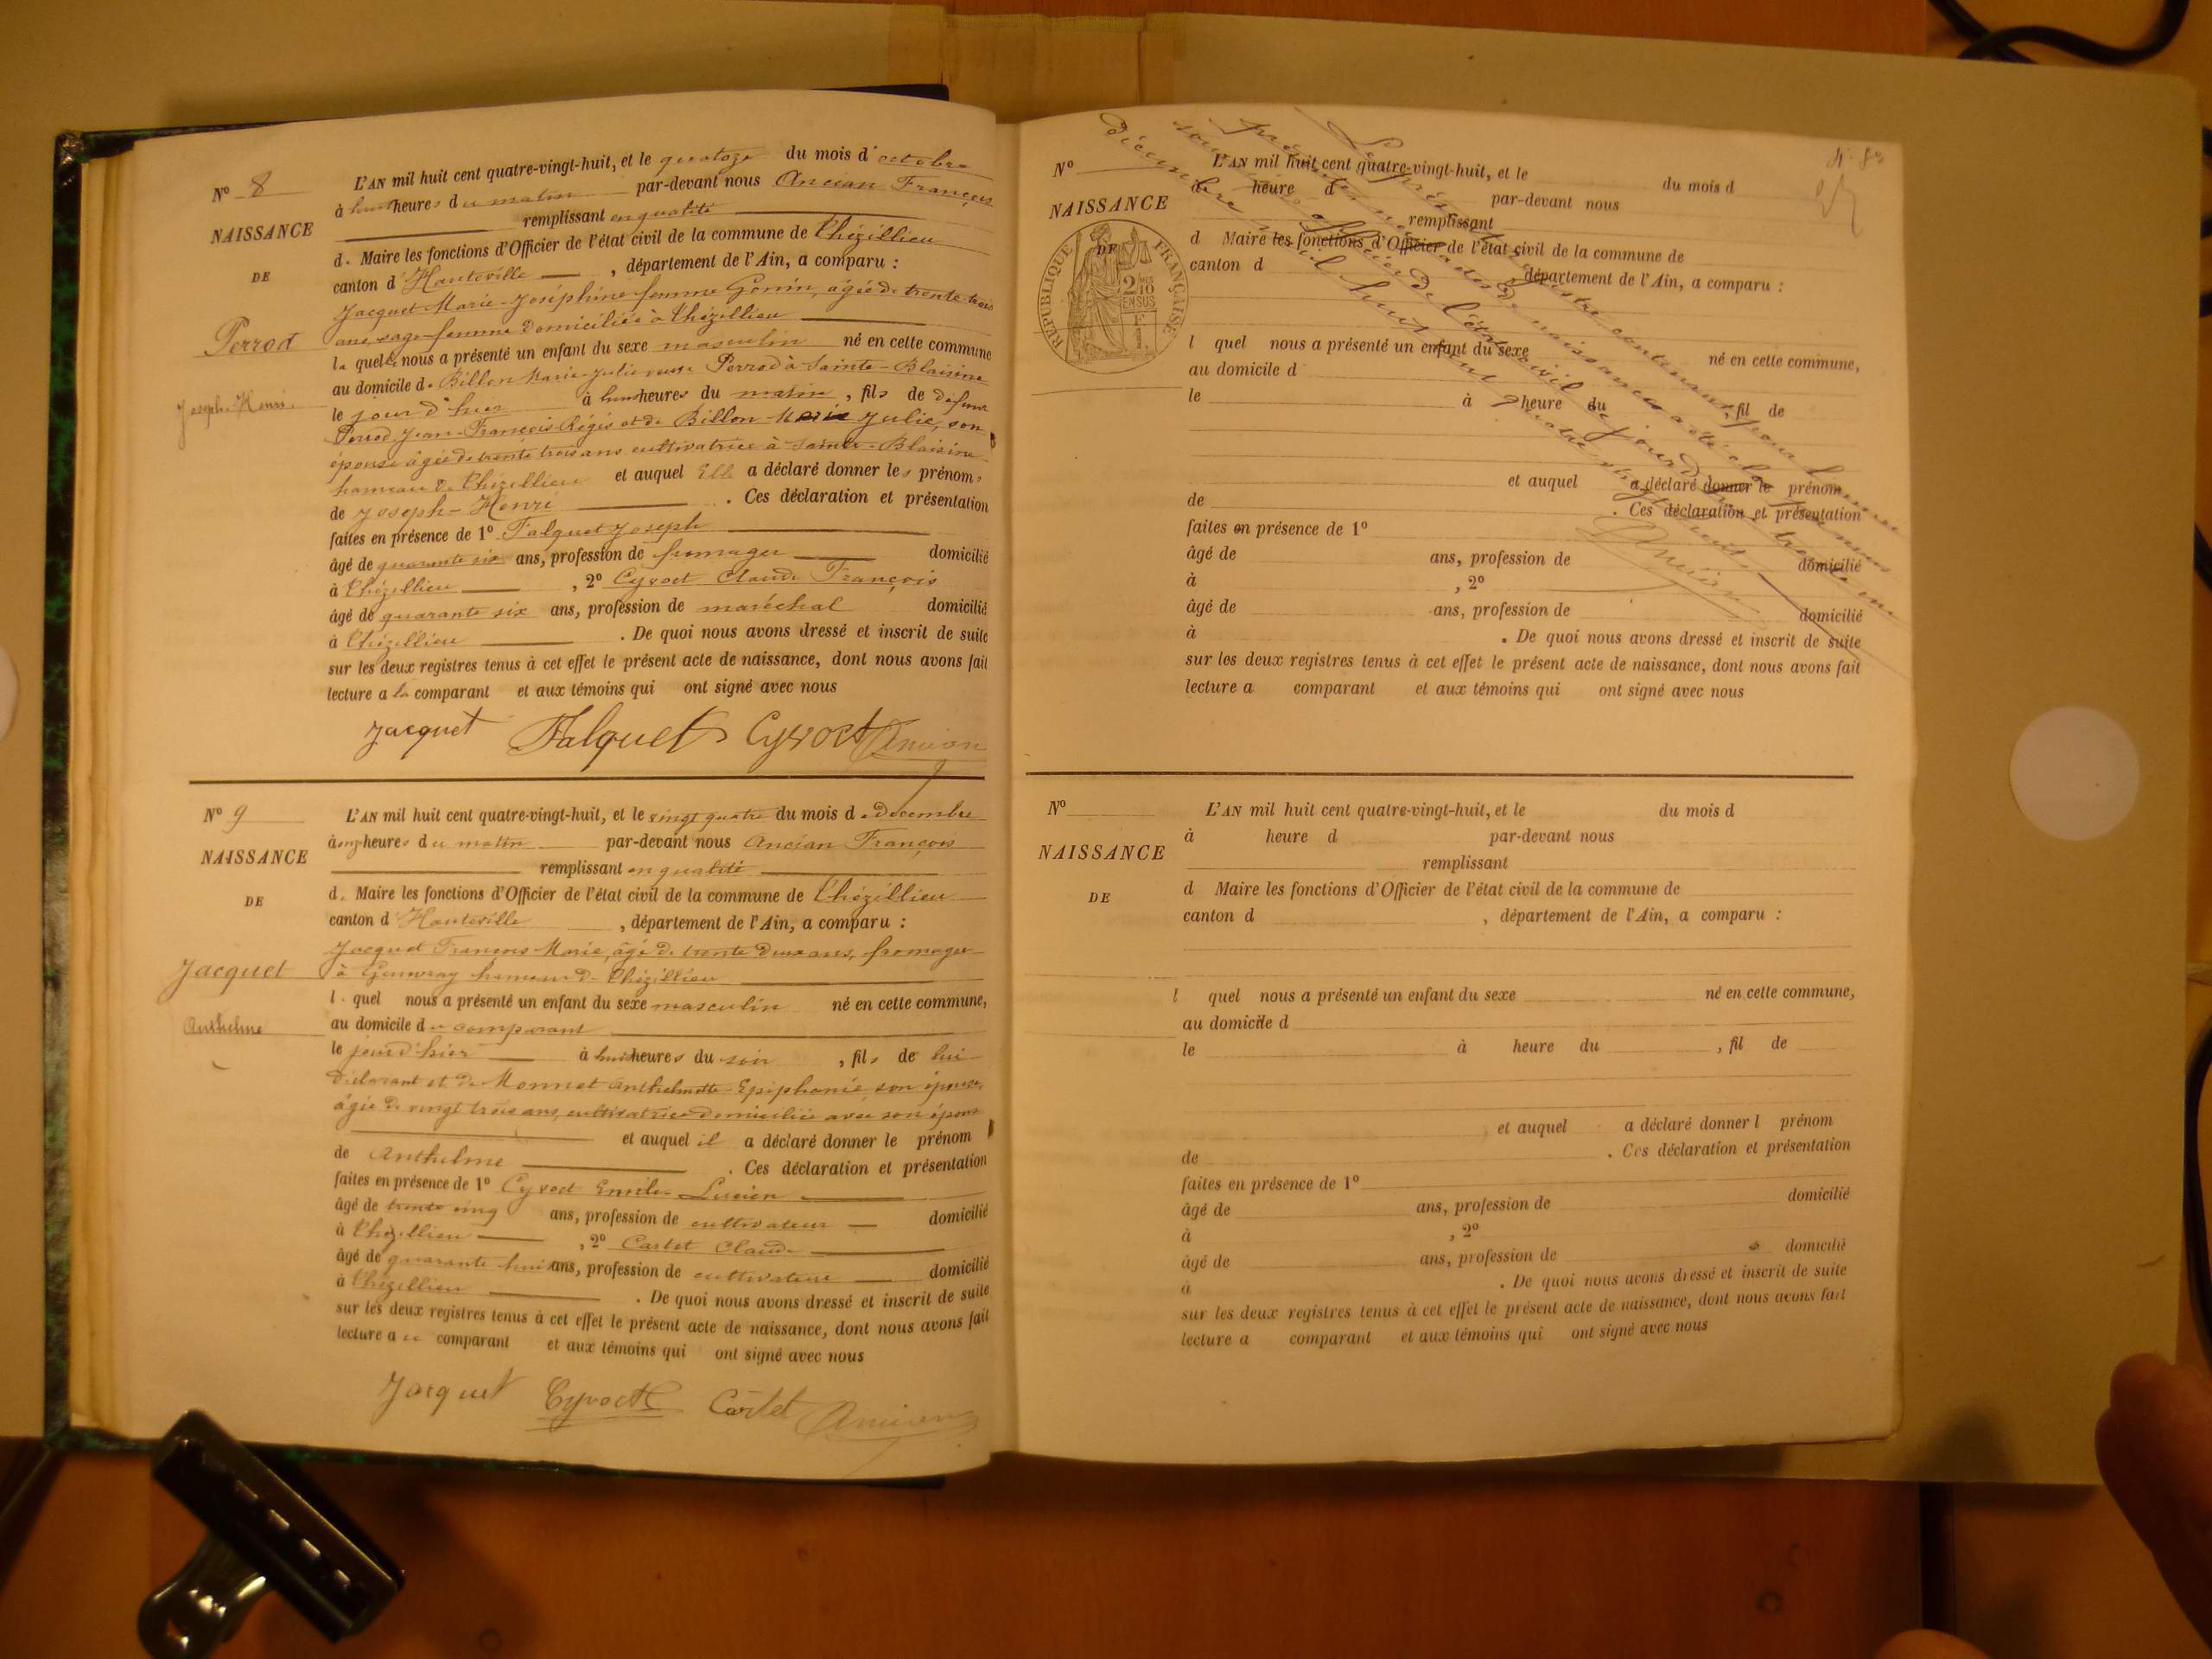 N° 8
NAISSANCE
DE
Perrod
Joseph-Henri
L'AN mil huit cent quatre-vingt-huit, et le quatorze du mois d'octobre
à huit heures du matin par-devant nous Ancian François
remplissant en qualité
de Maire les fonctions d'Officier de l'état civil de la commune de Thézillieu
canton d'Hauteville, département de l'Ain, a comparu :
Jacquet Marie-Joséphine femme Gonin, âgée de trente trois
ans, sage-femme domiciliée à Thézillieu
laquelle nous a présenté un enfant du sexe masculin né en cette commune
au domicile de Billon Marie-Julie veuve Perrod à Sainte-Blaisine
le jour d'hier à huit heures du matin, fils de défunt
Perrod Jean-François-Régis et de Billon Marie Julie, son
épouse âgée de trente trois ans cultivatrice à Sainte-Blaisine
hameau de Thézillieu et auquel Elle a déclaré donner les prénoms
de Joseph-Henri. Ces déclaration et présentation
faites en présence de 1° Falquet Joseph
âgé de quarante six ans, profession de fromager domicilié
à Thézillieu, 2° Cyvoct Claude François
âgé de quarante six ans, profession de maréchal domicilié
à Thézillieu. De quoi nous avons dressé et inscrit de suite
sur les deux registres tenus à cet effet le présent acte de naissance, dont nous avons fait
lecture a la comparant et aux témoins qui ont signé avec nous
Jacquet Falquet Cyvoct Ancian
N° 9
NAISSANCE
DE
Jacquet
Anthelme
L'AN mil huit cent quatre-vingt-huit, et le vingt quatre du mois de décembre
à onze heures du matin par-devant nous Ancian François
remplissant en qualité
de Maire les fonctions d'Officier de l'état civil de la commune de Thézillieu
canton d'Hauteville, département de l'Ain, a comparu :
Jacquet François-Marie, âgé de trente deux ans, fromager
à hameau de Thézillieu
lequel nous a présenté un enfant du sexe masculin né en cette commune,
au domicile du comparant
le jour d'hier à huit heures du soir, fils de lui
déclarant et de Monnet Anthelmette-Epiphanie, son épouse,
âgée de vingt trois ans, cultivatrice domiciliée avec son époux
et auquel il a déclaré donner le prénom
de Anthelme. Ces déclaration et présentation
faites en présence de 1° Cyvoct Emile-Lucien
âgé de trente cinq ans, profession de cultivateur domicilié
à Thézillieu, 2° Castet Claude
âgé de quarante huit ans, profession de cultivateur domicilié
à Thézillieu. De quoi nous avons dressé et inscrit de suite
sur les deux registres tenus à cet effet le présent acte de naissance, dont nous avons fait
lecture a u comparant et aux témoins qui ont signé avec nous
Jacquet Cyvoct Castet Ancian
Le présent registre contenant pour la commune
naissances a été clos
officier de l'état civil ce jourd'hui trente un
décembre mil huit cent quatre vingt huit
Ancian
N°
NAISSANCE
DE
RÉPUBLIQUE FRANÇAISE
2/10 EN SUS
L'AN mil huit cent quatre-vingt-huit, et le du mois d
à heure d par-devant nous
remplissant
d Maire les fonctions d'Officier de l'état civil de la commune de
canton d département de l'Ain, a comparu :
l quel nous a présenté un enfant du sexe né en cette commune,
au domicile d
le à heure du , fil de
et auquel a déclaré donner le prénom
de . Ces déclaration et présentation
faites en présence de 1°
âgé de ans, profession de domicilié
à , 2°
âgé de ans, profession de domicilié
à . De quoi nous avons dressé et inscrit de suite
sur les deux registres tenus à cet effet le présent acte de naissance, dont nous avons fait
lecture a comparant et aux témoins qui ont signé avec nous
N°
NAISSANCE
DE
L'AN mil huit cent quatre-vingt-huit, et le du mois d
à heure d par-devant nous
remplissant
d Maire les fonctions d'Officier de l'état civil de la commune de
canton d , département de l'Ain, a comparu :
l quel nous a présenté un enfant du sexe né en cette commune,
au domicile d
le à heure du , fil de
et auquel a déclaré donner l prénom
de . Ces déclaration et présentation
faites en présence de 1°
âgé de ans, profession de domicilié
à , 2°
âgé de ans, profession de domicilié
à . De quoi nous avons dressé et inscrit de suite
sur les deux registres tenus à cet effet le présent acte de naissance, dont nous avons fait
lecture a comparant et aux témoins qui ont signé avec nous